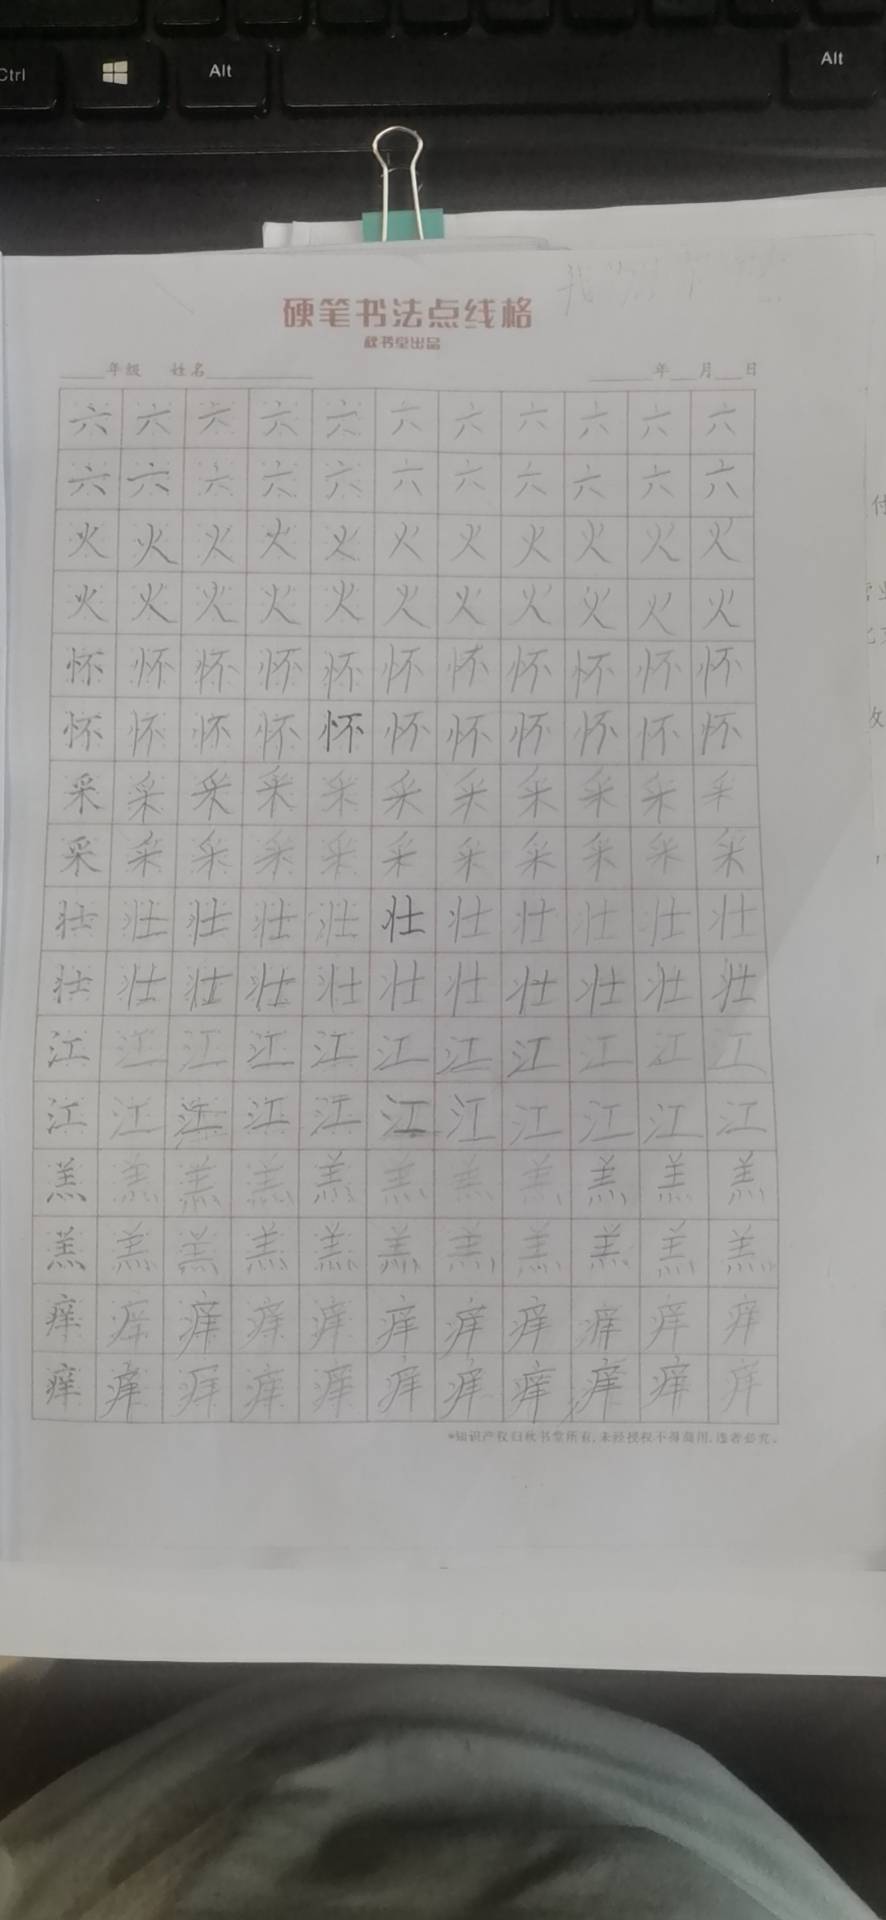 Ctrl Alt Alt
硬笔书法点线格
秋书堂出品
年级 姓名 年 月 日
六 六 六 六 六 六 六 六 六 六 六
六 六 六 六 六 六 六 六 六 六 六
火 火 火 火 火 火 火 火 火 火 火
火 火 火 火 火 火 火 火 火 火 火
怀 怀 怀 怀 怀 怀 怀 怀 怀 怀 怀
怀 怀 怀 怀 怀 怀 怀 怀 怀 怀 怀
采 采 采 采 采 采 采 采 采 采 采
采 采 采 采 采 采 采 采 采 采 采
壮 壮 壮 壮 壮 壮 壮 壮 壮 壮 壮
壮 壮 壮 壮 壮 壮 壮 壮 壮 壮 壮
江 江 江 江 江 江 江 江 江 江 江
江 江 江 江 江 江 江 江 江 江 江
羔 羔 羔 羔 羔 羔 羔 羔 羔 羔 羔
羔 羔 羔 羔 羔 羔 羔 羔 羔 羔 羔
痒 痒 痒 痒 痒 痒 痒 痒 痒 痒 痒
痒 痒 痒 痒 痒 痒 痒 痒 痒 痒 痒
*知识产权归秋书堂所有,未经授权不得商用,违者必究。